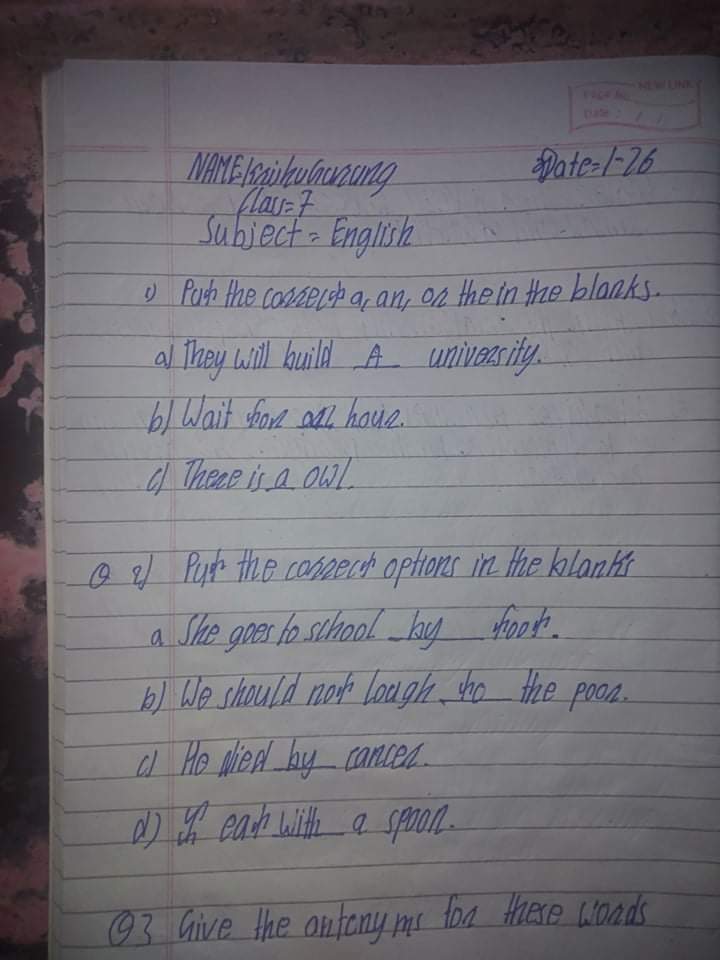 NEW LINK
PAGE No.
Date : / /
NAME Date=1-26
Class=7
Subject = English
1) Put the correct a, an, or the in the blanks.
a) They will build A university.
b) Wait for an hour.
c) There is a owl.
Q 2) Put the correct options in the blanks
a She goes to school by foot.
b) We should not laugh to the poor.
c) He died by cancer.
d) I eat with a spoon.
Q3 Give the antonyms for these words